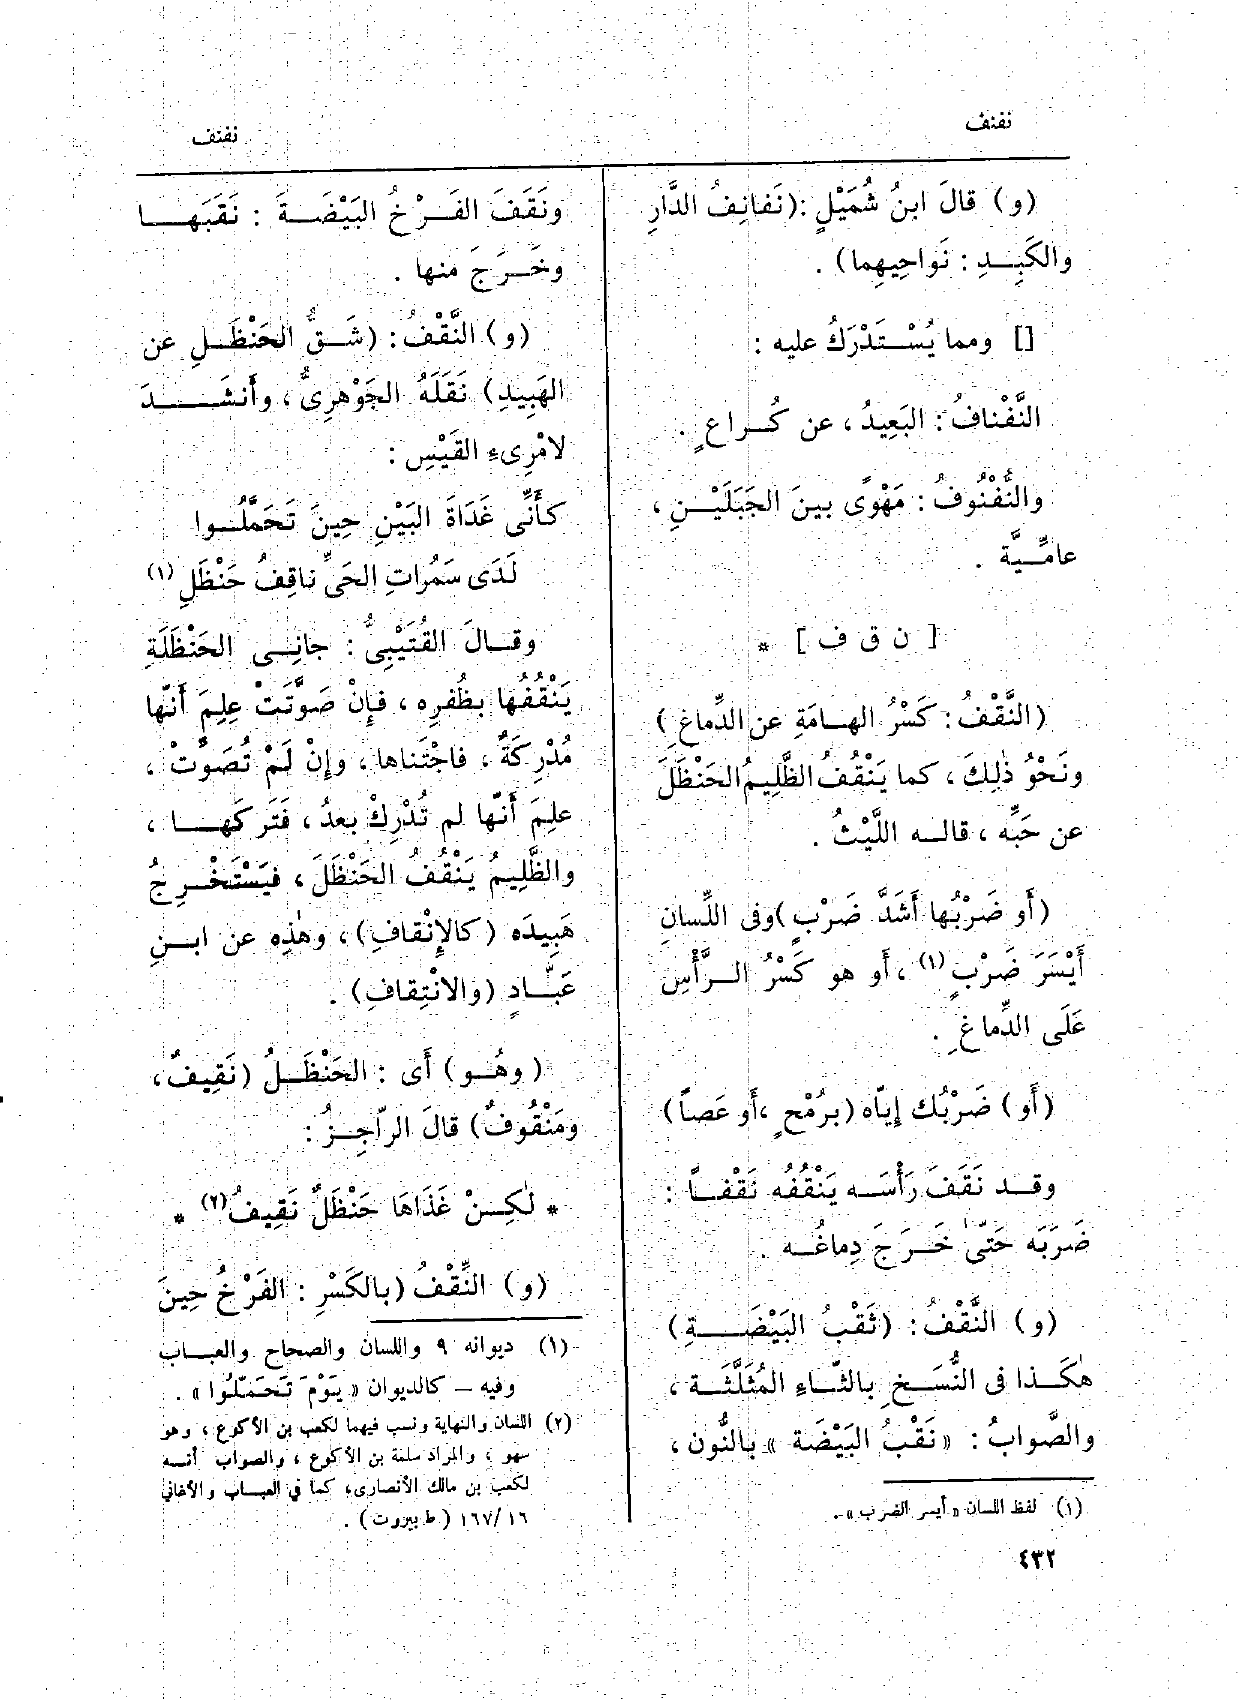 نفنف
نفنف
(و) قالَ ابنُ شُمَيْلٍ :(نَفانِفُ الدَّارِ
والكَبِـدِ : نَواحِيهِما) .
[] ومما يُسْتَدْرَكُ عليه :
النَّفْنافُ : البَعِيدُ ، عن كُراعٍ .
والنُّفْنُوفُ : مَهْوًى بينَ الجَبَلَيْـنِ ،
عامِّـيَّة .
[ ن ق ف ] *
(النَّقْفُ : كَسْرُ الهـامَةِ عن الدِّماغِ )
ونَحْوُ ذٰلِكَ ، كما يَنْقُفُ الظَّلِيمُ الحَنْظَلَ
عن حَبِّه ، قالـه اللَّيْثُ .
(أَو ضَرْبُها أَشَدَّ ضَرْبٍ) وفى اللِّسانِ
أَيْسَرَ ضَرْبٍ (١) ، أَو هو كَسْرُ الـرَّأْسِ
عَلَى الدِّماغِ .
(أَو) ضَرْبُك إِيّاه (برُمْحٍ ، أَو عَصاً)
وقـد نَقَفَ رَأْسَـه يَنْقُفُه نَقْفـاً :
ضَرَبَه حَتّى خَـرَجَ دِماغُـه .
(و) النَّقْفُ : (ثَقْبُ البَيْضَـةِ)
هٰكَـذا فى النُّسَخِ بالثّـاءِ المُثَلَّثَـة ،
والصَّوابُ : «نَقْبُ البَيْضَة» بالنُّون ،
(١) لفظ اللسان «أيسر الضرب» .
ونَقَفَ الفَـرْخُ البَيْضَـةَ : نَقَبَهـا
وخَـرَجَ منها .
(و) النَّقْفُ : (شَـقُّ الحَنْظَـلِ عن
الهَبِيدِ) نَقَلَهُ الجَوْهرِىُّ ، وأَنشَـدَ
لامْرِىءِ القَيْسِ :
كأَنِّى غَدَاةَ البَيْنِ حِينَ تَحَمَّلُـوا
لَدَى سَمُراتِ الحَىِّ ناقِفُ حَنْظَلِ (١)
وقـالَ القُتَيْبِىُّ : جانِـى الحَنْظَلَةِ
يَنْقُفُها بظُفرِه ، فإِنْ صَوَّتَتْ عِلِمَ أَنّها
مُدْرِكَةٌ ، فاجْتَناها ، وإِنْ لَمْ تُصَوِّتْ ،
علِمَ أَنّها لم تُدْرِكْ بعدُ ، فَتَرَكَهـا ،
والظَّلِيمُ يَنْقُفُ الحَنْظَلَ ، فيَسْتَخْـرِجُ
هَبِيدَه (كالإِنْقافِ) ، وهٰذِه عن ابـنِ
عَبَّـادٍ (والانْتِقافِ) .
(وهُـو) أَى : الحَنْظَـلُ (نَقِيفٌ ،
ومَنْقُوفٌ) قالَ الرّاجِـزُ :
* لٰكِـنْ غَذَاهَا حَنْظَلٌ نَقِيفُ (٢) *
(و) النِّقْفُ (بالكَسْرِ : الفَرْخُ حِينَ
(١) ديوانه ٩ واللسان والصحاح والعبـاب
وفيه – كالديوان «يَوْمَ تَحَمَّلُوا» .
(٢) اللسان والنهاية ونسب فيهما لكعب بن الأكوع ، وهو
سهو ، والمراد سلمة بن الأكوع ، والصواب أنـه
لكعب بن مالك الأنصارى ، كما في العبـاب والأغاني
١٦/١٦٧ (ط بيروت) .
٤٣٢